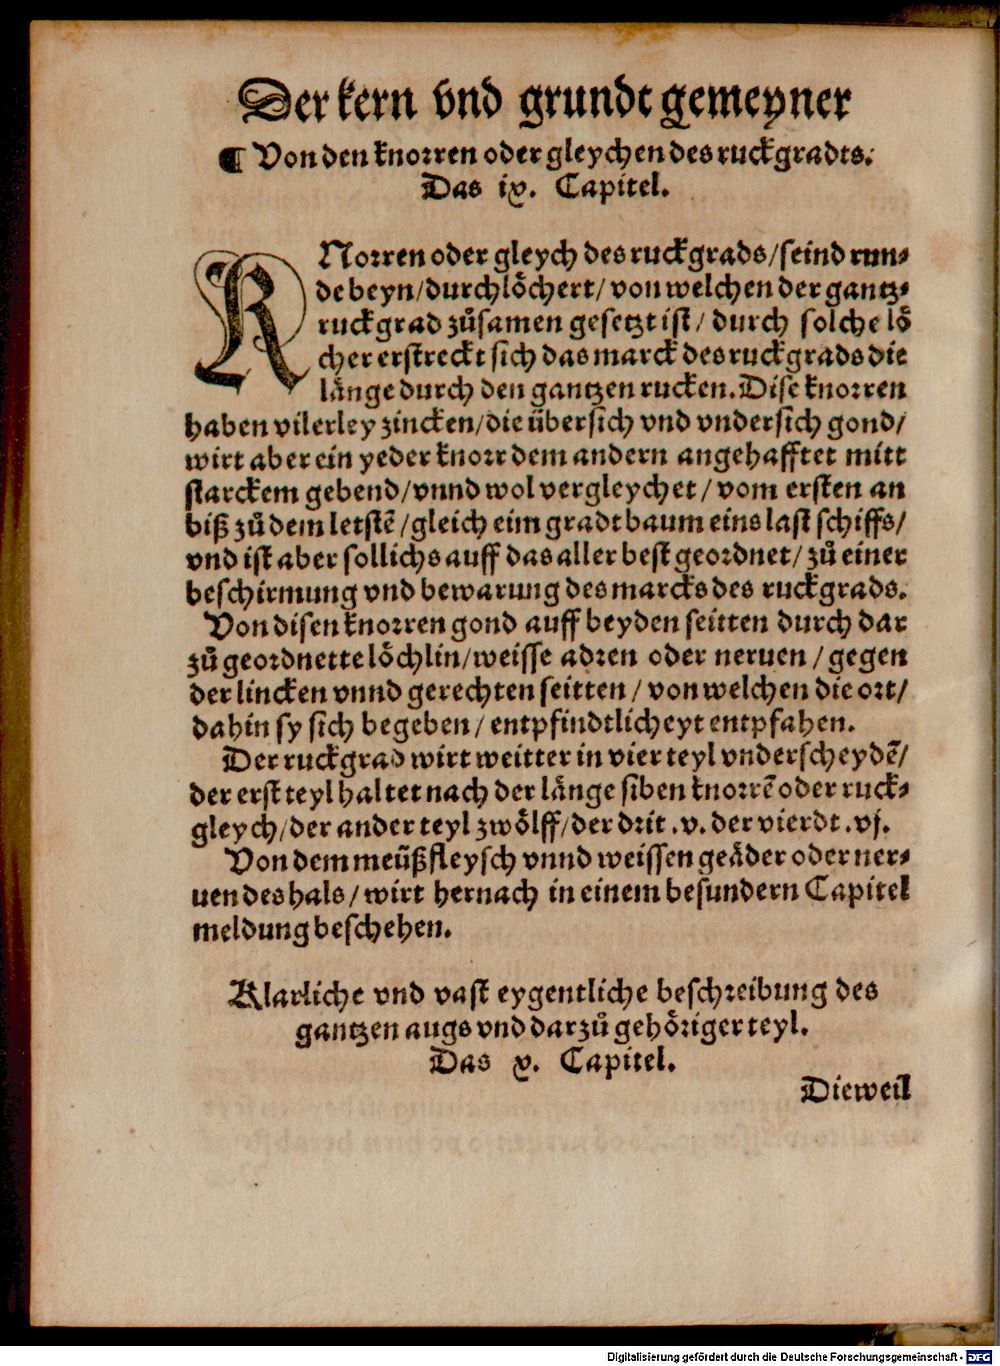 Der kern vnd grundt gemeyner
¶ Von den knorren oder gleychen des ruckgradts.
Das ix. Capitel.
KNorren oder gleych des ruckgrads/seind run⸗
de beyn/durchlöchert/von welchen der gantz⸗
ruckgrad zůsamen gesetzt ist/durch solche lö
cher erstreckt sich das marck des ruckgrads die
länge durch den gantzen rucken. Dise knorren
haben vilerley zincken/die übersich vnd vndersich gond/
wirt aber ein yeder knorr dem andern angehafftet mitt
starckem gebend/vnnd wol vergleychet/vom ersten an
biß zů dem letstē/gleich eim gradtbaum eins last schiffs/
vnd ist aber sollichs auff das aller best geordnet/zů einer
beschirmung vnd bewarung des marcks des ruckgrads.
Von disen knorren gond auff beyden seitten durch dar
zů geordnette löchlin/weisse adren oder neruen/gegen
der lincken vnnd gerechten seitten/von welchen die ort/
dahin sy sich begeben/entpfindtlicheyt entpfahen.
Der ruckgrad wirt weitter in vier teyl vnderscheydē/
der erst teyl haltet nach der länge siben knorrē oder ruck⸗
gleych/der ander teyl zwölff/der drit .v. der vierdt .vj.
Von dem meüßfleysch vnnd weissen geäder oder ner⸗
uen des hals/wirt hernach in einem besundern Capitel
meldung beschehen.
Klarliche vnd vast eygentliche beschreibung des
gantzen augs vnd darzů gehöriger teyl.
Das x. Capitel.
Dieweil
Digitalisierung gefördert durch die Deutsche Forschungsgemeinschaft - DFG